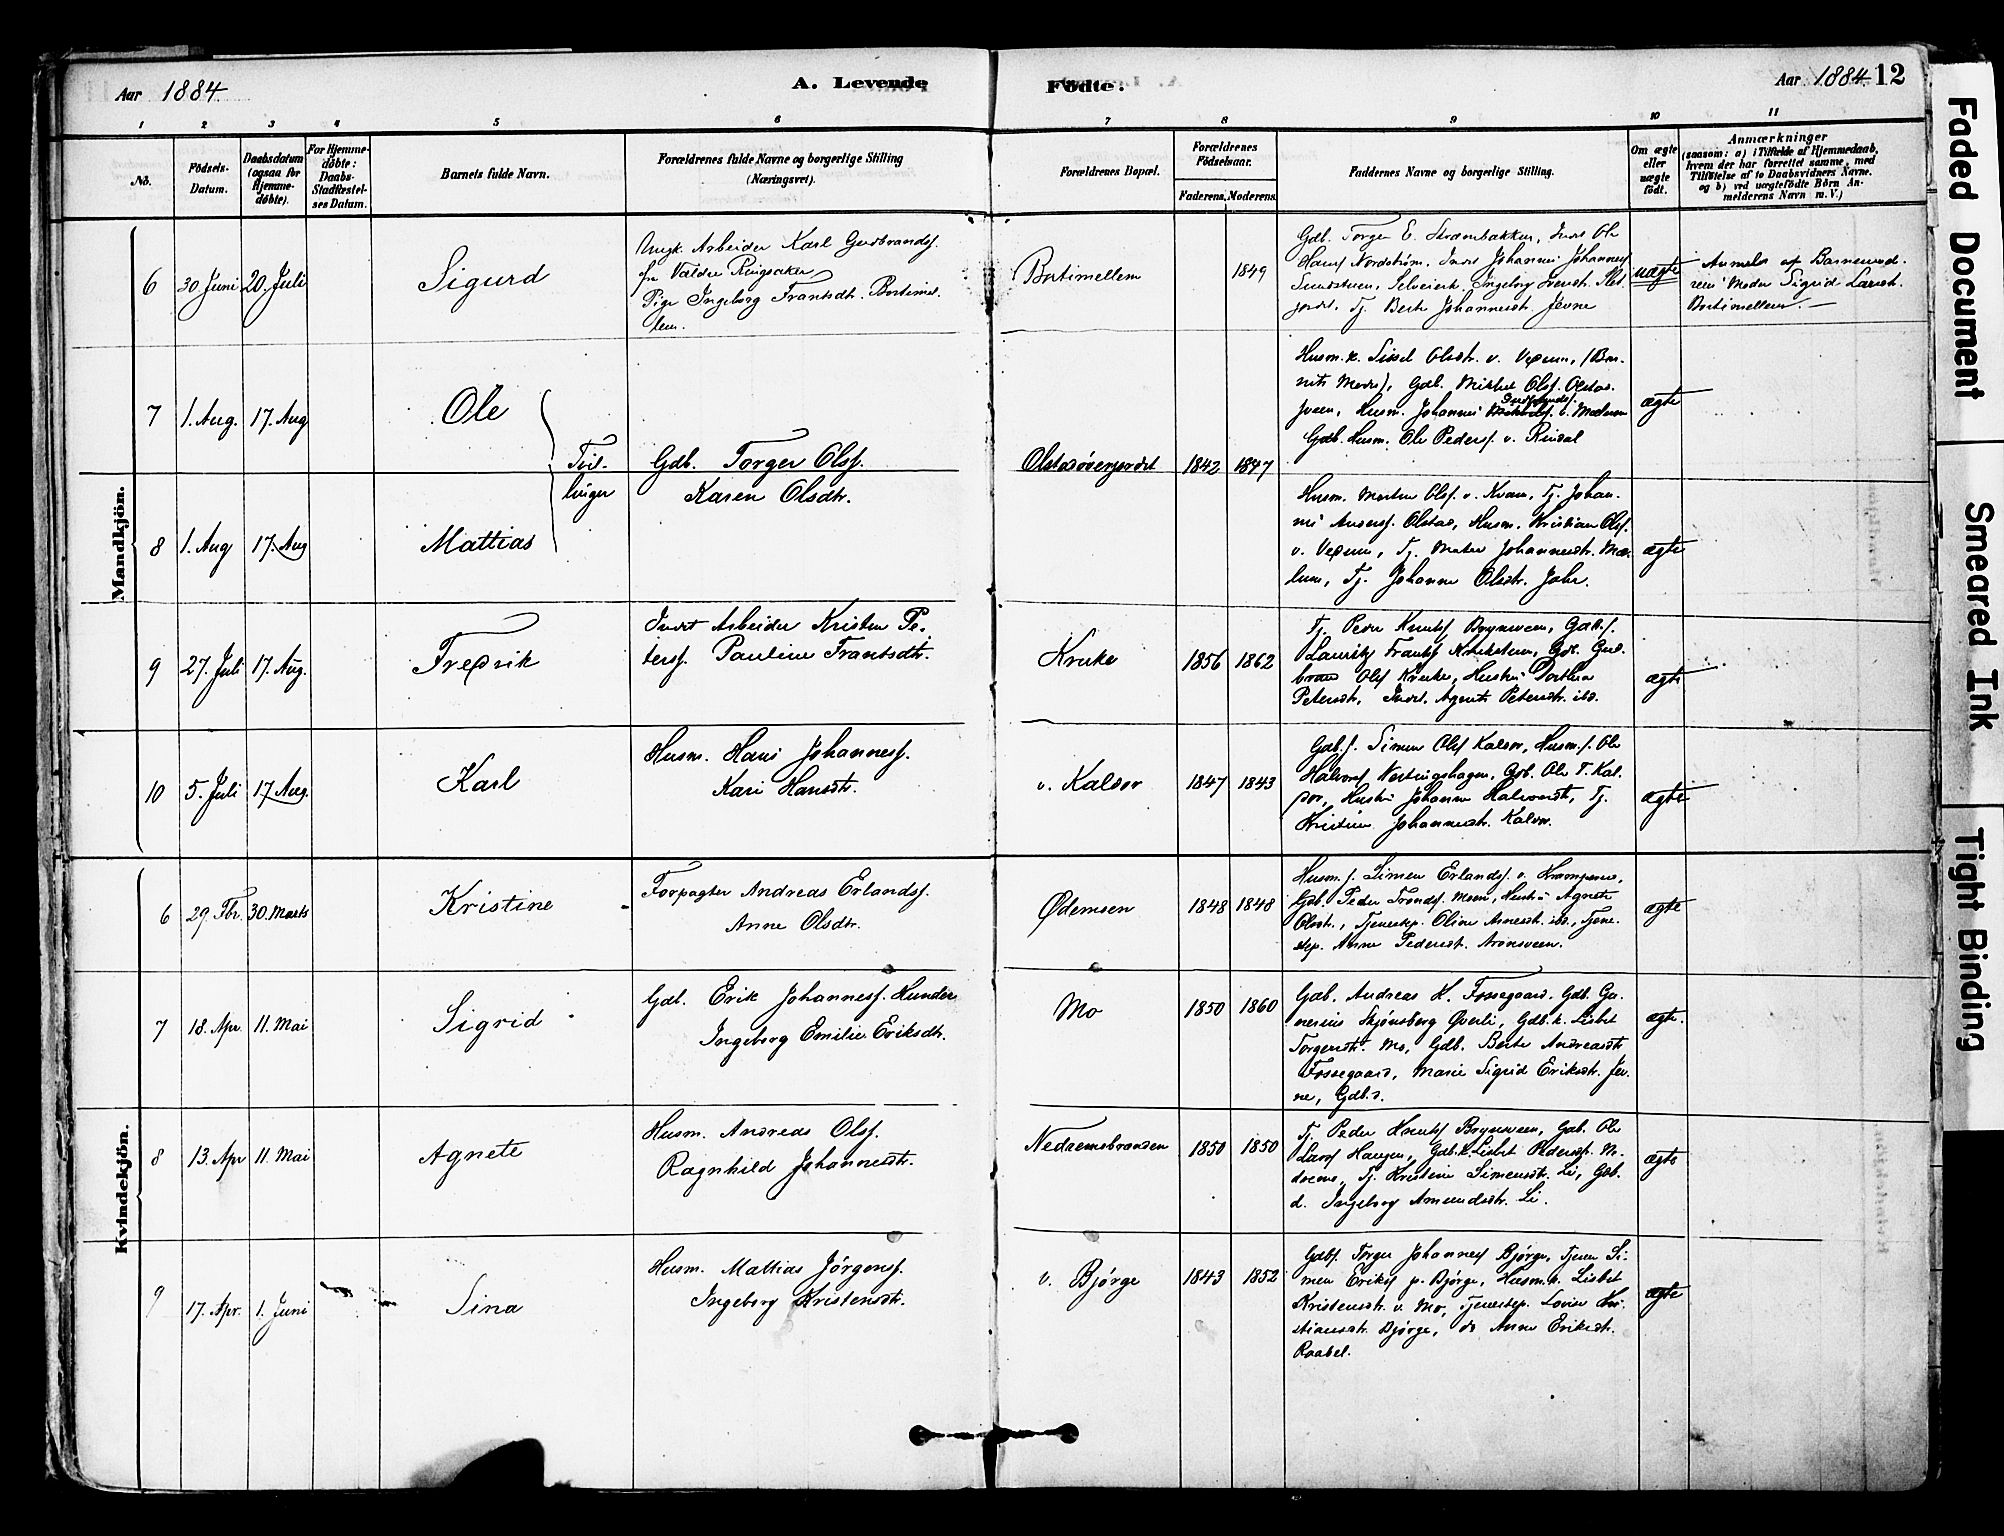 Aar 1884.
A. Levende
Födte.
Aar 1884 12
1 2 3 4 5 6 7 8 9 10 11
No.
Födsels-Datum.
Daabsdatum (ogsaa for Hjemme-döbte).
For Hjemme-döbte: Daabs-Stadfæstelses Datum.
Barnets fulde Navn.
Forældrenes fulde Navne og borgerlige Stilling (Næringsvei).
Forældrenes Bopæl.
Forældrenes Födselsaar.
Faderens. Moderens.
Faddernes Navne og borgerlige Stilling.
Om ægte eller uægte födt.
Anmærkninger
(saasom: a) i Tilfælde af Hjemmedaab, hvem der har forrettet samme, med Tilföielse af to Daabsvidners Navne. og b) ved uægtefödte Börn Anmelderens Navn m. V.)
Mandkjön.
6 30. Juni 20. Juli Sigurd
Ungk. Arbeider Karl Gudbrandsf.
fra Valdre Ringsaker
Pige Ingeborg Frantsdt. Bortimel-
lem.
Bortimellem 1849
Gdb. Torger E. Strømbakken, Inds. Ole
Hansf Nordstrøm, Inds. Johannes Johannesf
jordet. Tj. Berte Johannesdt. Jevne
uægte
Anmeldt af Barnemod-
rens Moder Sigrid Larsdt.
Bortimellem.
7 1. Aug. 17. Aug Ole
Tvil-
linger
Gdb. Torger Olsf.
Karen Olsdtr.
Olstadøverjordet 1842 1847
Husm. k. Sissel Olsdtr. v. Vedum, (Bar-
nets Moder), Gdb. Mikkel Olsf. Olstad-
sveen, Husm. Johannes Gudbrandsf. v. Mælum
Gdb. Husm. Ole Pedersf. v. Rindal
ægte
8 1. Aug 17. Aug Mattias
Husm. Morten Olsf. v. Kvam, Tj. Johan-
nes Andersf. Olstad, Husm. Kristian Olsf.
v. Vedum, Tj. Mater Johannesdt. Mæ-
lum, Tj. Johanne Olsdtr. Johr.
ægte
9 27. Juli 17. Aug. Fredrik
Indst Arbeider Kristen Pe-
tersf. Pauline Frantsdtr.
Kruke 1856 1862
Tj. Peder Knutsf Brynsveen, Gdb.f.
Lauritz Frantsf Krukstuen, Gdb. Gud-
brand Olsf Kruke, Hustru Dorthea
Petersdt, Inds. Agnete Petersdt. ibd.
ægte
10 5. Juli 17. Aug. Karl
Husm. Hans Johannesf.
Kari Hansdtr.
v. Kaldor 1847 1843
Gdb. f. Simen Olsf Kaldor, Husm. f. Ole
Halvorsf Nertingshagen, Gdb. Ole T. Kal-
dor, Hustru Johanne Halvorsdt, Tj.
Kristine Johannesdt. Kaldor.
ægte
Kvindekjön.
6 29. Fbr. 30. Marts Kristine
Forpagter Andreas Erlandsf.
Anne Olsdtr.
Ødemoen 1848 1848
Husm. f. Simen Erlandsf. v.
Gdb. Peder Trondsf. Moen, Hustru Agnete
Olsdt., Tjenestep. Oline Arnesdt. ibd., Tjene-
step. Anne Pedersdt. Aronsveen.
ægte
7 18. Apr. 11. Mai Sigrid
Gdb. Erik Johannesf. Hunder
Ingeborg Emilie Eriksdtr.
Mo 1850 1860
Gdb. Andreas H. Fossegaard. Gdb. Gu-
nerius Skjønsberg Øverli, Gdb. k. Lisbet
Torgersdt. Mo, Gdb. Berte Andreasdt
Fossegaard, Marie Sigrid Eriksdt. Jev-
ne, Gdb. d.
ægte.
8 13. Apr 11. Mai Agnete
Husm. Andreas Olsf.
Ragnhild Johannesdtr.
Nedremsbranden 1850 1850
Tj. Peder Knutsf Brynsveen, Gdb. Ole
Larsf Haugen, Gdb. k. Lisbet Pedersdt. Ne-
drems, Tj. Kristine Simensdt. Li, Gdb.
d. Ingeborg Amundsdtr. Li.
ægte
9 17. Apr. 1. Juni Sina
Husm. Mattias Jörgensf.
Ingeborg Kristensdtr.
v. Bjørge 1843 1852
Gdbf. Torger Johannesf Bjørge, Tjener Si-
men Eriksf p. Bjørge, Husm. k. Lisbet
Kristensdtr. v. Mo, Tjenestep. Lovise Kri-
stiansdt. Bjørge, do Anne Eriksdt.
Raabøl.
ægte
Faded Document
Smeared Ink
Tight Binding